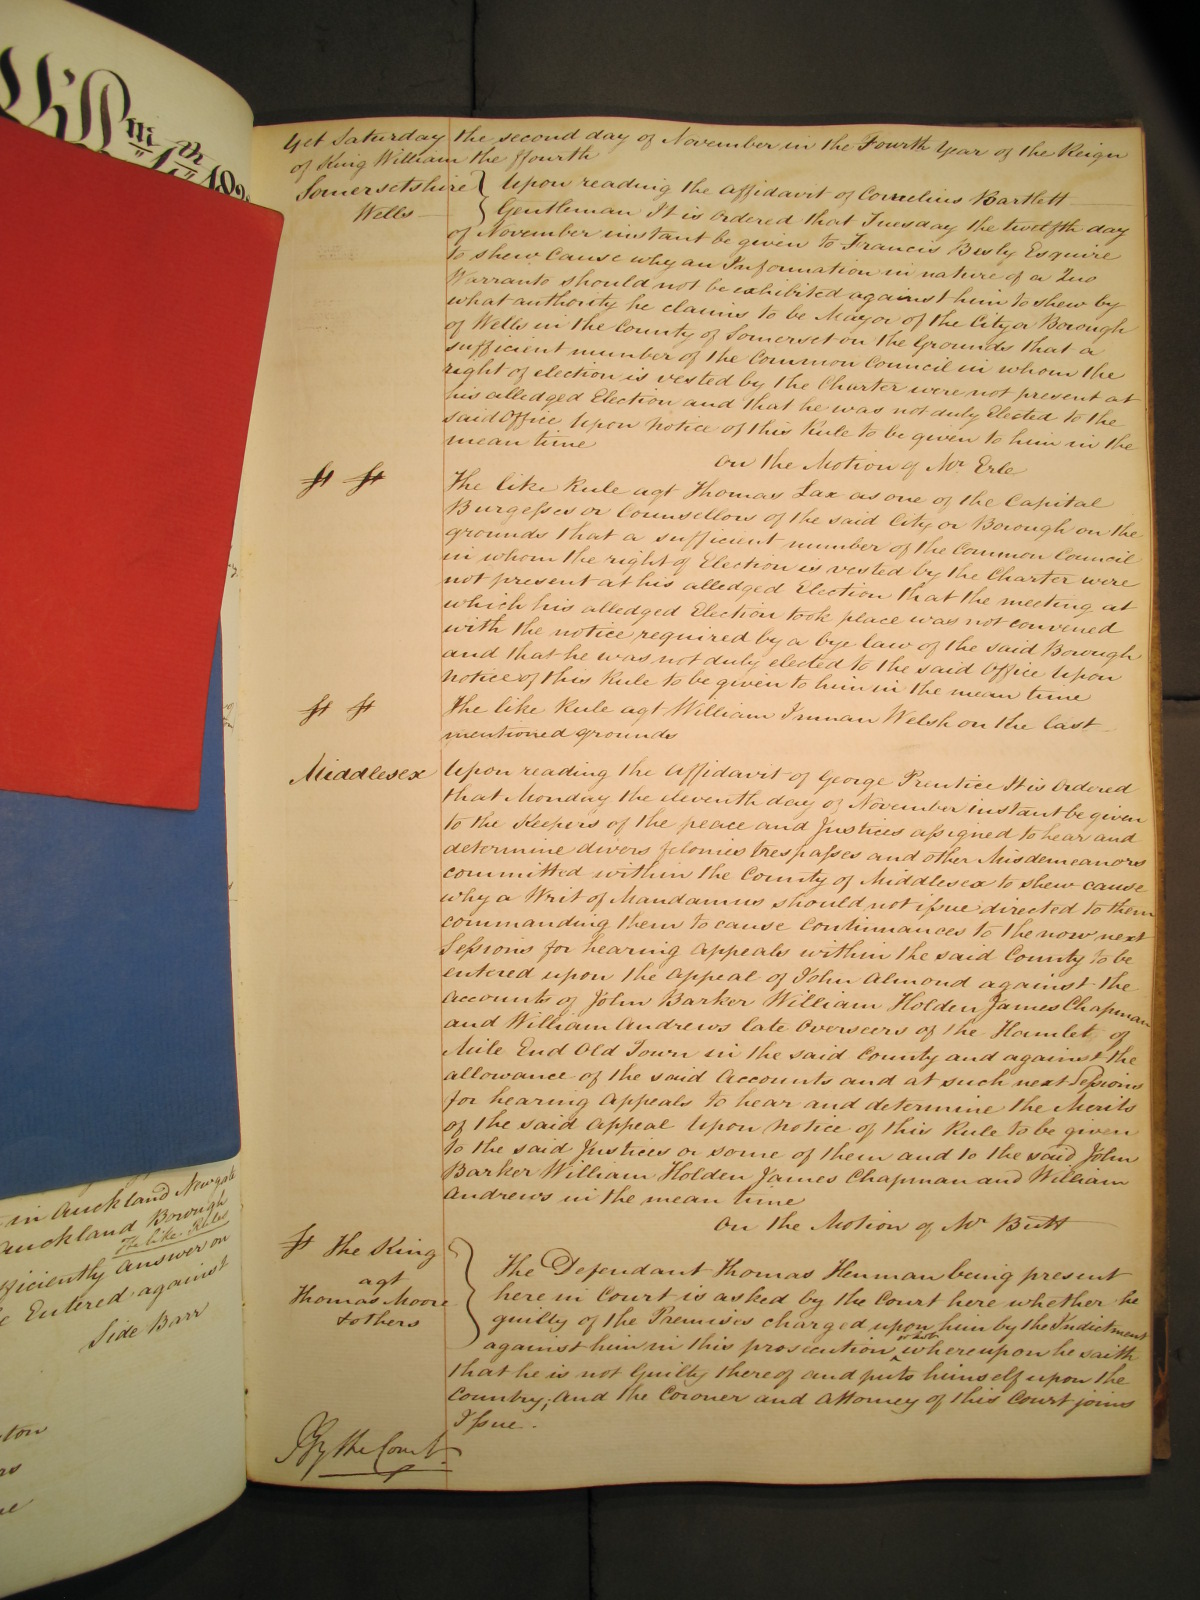 Yet Saturday the second day of November in the Fourth Year of the Reign
of King William the ffourth
Somersetshire
Wells
Upon reading the affidavit of Cornelius Bartlett
Gentleman It is ordered that Tuesday the twelfth day
of November instant be given to Francis Besly Esquire
to shew Cause why an Information in nature of a Quo
Warranto should not be exhibited against him to shew by
what authority he claims to be Mayor of the City or Borough
of Wells in the County of Somerset on the Grounds that a
sufficient number of the Common Council in whom the
right of election is vested by the Charter were not present at
his alledged Election and that he was not duly Elected to the
said Office Upon notice of this Rule to be given to him in the
mean time
On the Motion of Mr Erle
The like Rule agt Thomas Lax as one of the Capital
Burgesses or Counsellors of the said City or Borough on the
grounds that a sufficient number of the Common Council
in whom the right of Election is vested by the Charter were
not present at his alledged Election that the meeting at
which his alledged Election took place was not convened
with the notice required by a bye law of the said Borough
and that he was not duly elected to the said Office Upon
notice of this Rule to be given to him in the mean time
The like Rule agt William Inman Welsh on the last
mentioned grounds
Middlesex
Upon reading the affidavit of George Prentice It is Ordered
that Monday the eleventh day of November instant be given
to the Keepers of the peace and Justices assigned to hear and
determine divers felonies trespasses and other Misdemeanors
committed within the County of Middlesex to shew cause
why a Writ of Mandamus should not issue directed to them
commanding them to cause Continuances to the now next
Sessions for hearing appeals within the said County to be
entered upon the appeal of John Almond against the
accounts of John Barker William Holden James Chapman
and William Andrews late Overseers of the Hamlet of
Mile End Old Town in the said County and against the
allowance of the said Accounts and at such next Sessions
for hearing Appeals to hear and determine the Merits
of the said Appeal Upon notice of this Rule to be given
to the said Justices or some of them and to the said John
Barker William Holden James Chapman and William
Andrews in the mean time
On the Motion of Mr Butt
The King
agt
Thomas Moore
& others
The Defendant Thomas Henman being present
here in Court is asked by the Court here whether he
guilty of the Premises charged upon him by the Indictment
against him in this prosecution or not whereupon he saith
that he is not Guilty thereof and puts himself upon the
Country; and the Coroner and Attorney of this Court joins
Issue.
By the Court
in Auckland Newgate
Auckland Borough
The like Rules
sufficiently answer on
Entered against
Side Barr